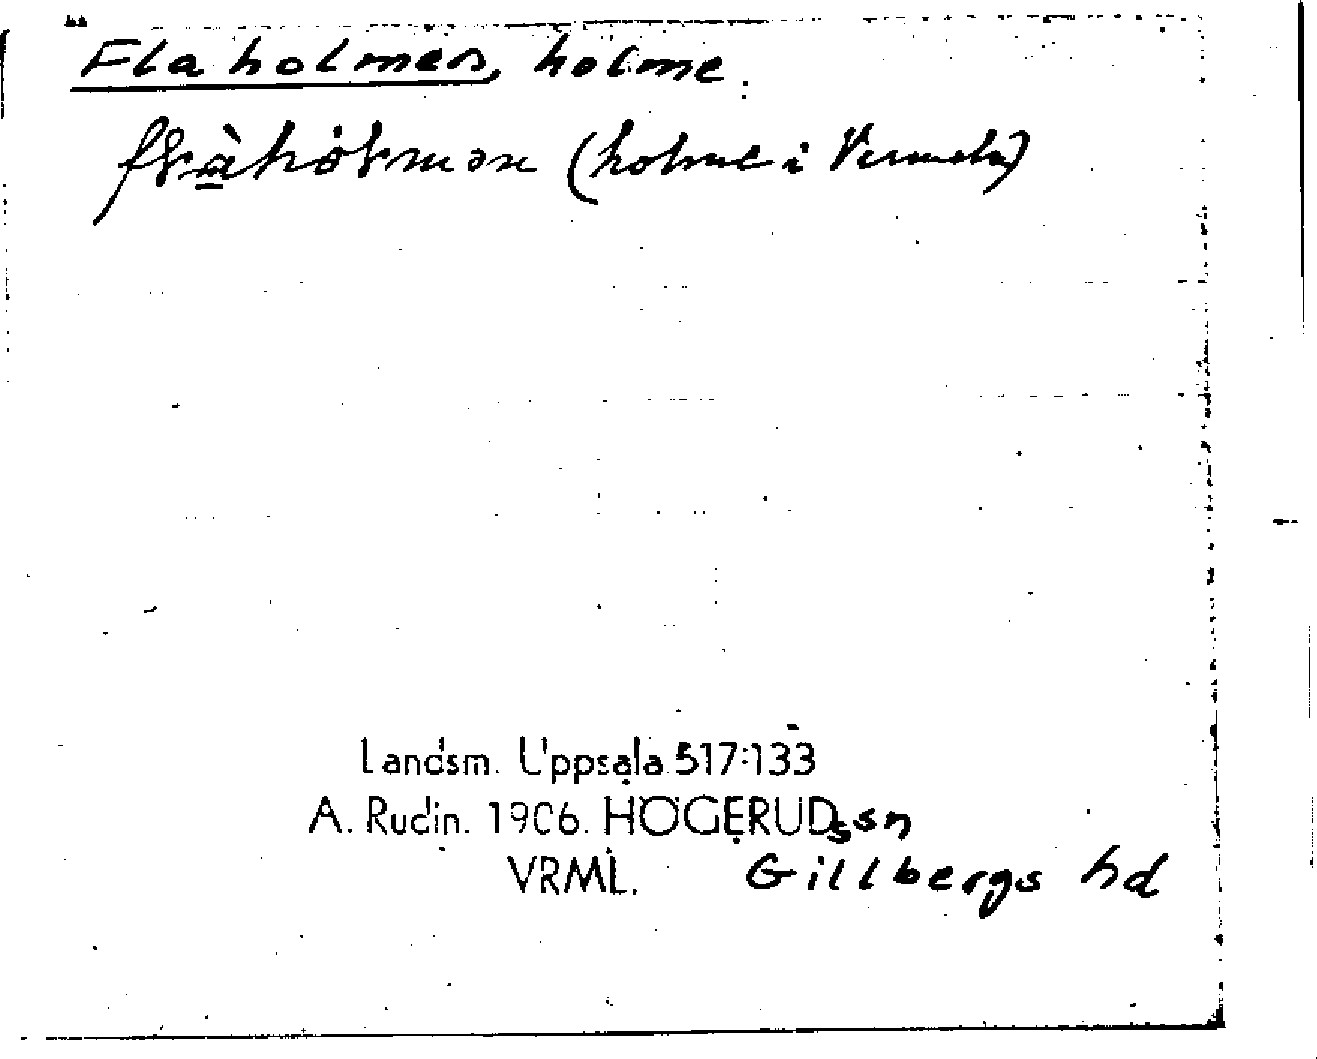 Flaholmen, holme
(holme i Vermeln)
Landsm. Uppsala 517:133
A. Rudin. 1906. HÖGERUDs sn
VRML. Gillbergs hd